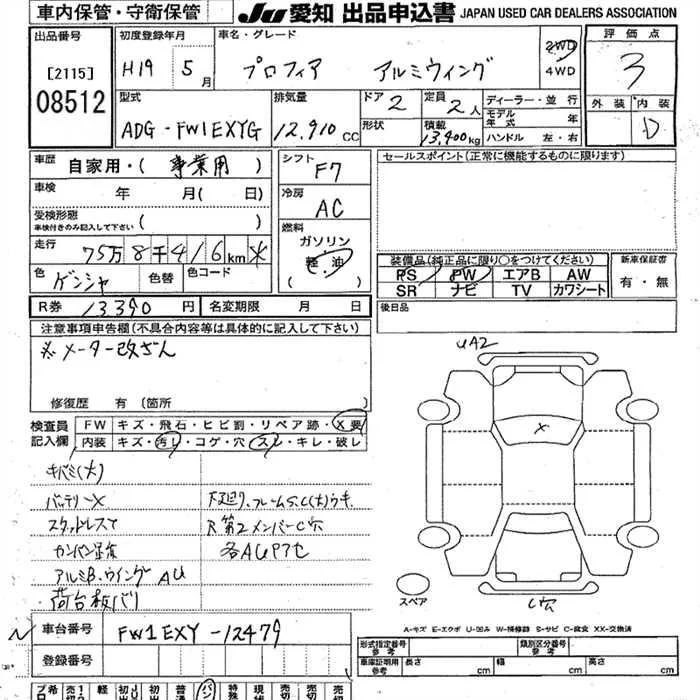 車内保管・守衛保管
JU 愛知 出品申込書 JAPAN USED CAR DEALERS ASSOCIATION
出品番号
[2115]
08512
初度登録年月
H19 5月
車名・グレード
プロフィア アルミウイング
2WD
4WD
評価点
3
外装 内装
D
型式
ADG-FW1EXYG
排気量
12.910 CC
ドア 2
形状
定員 2人
積載 13,400kg
ディーラー・並行
モデル年式 年
ハンドル 左・右
車歴 自家用・(事業用)
車検 年 月( 日)
受検形態
車検付きのみ記入して下さい ( )
走行 75万8千416km
色 ゲンシャ 色替 色コード
シフト F7
冷房 AC
燃料
ガソリン
軽油
( )
セールスポイント(正常に機能するものに限ります)
装備品(純正品に限り○をつけてください)
PS PW エアB AW
SR ナビ TV カワシート
新車保証書
有・無
後日品
R券 13390円 名変期限 月 日
注意事項申告欄(不具合内容等は具体的に記入して下さい)
※メーター改ざん
修復歴 有 (箇所
検査員記入欄
FW キズ・飛石・ヒビ割・リペア跡・X要
内装 キズ・汚レ・コゲ・穴・スレ・キレ・破レ
キバミ(大)
バッテリーX
スタッドレスT
アルミB、ウイング AU
下廻り、フレームS,C(大)ウキ
R 第2メンバーC穴
UA2
X
C穴
スペア
A-キズ E-エクボ U-凹み W-補修跡 S-サビ C-腐食 XX-交換済
車台番号 FW1EXY-12479
登録番号
形式指定番号 参考
類別区分番号 参考
車庫証明用 参考 長さ cm 幅 cm 高さ cm